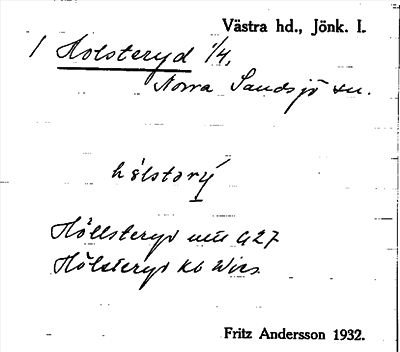 Västra hd., Jönk. l.
1 Holsteryd 1/4,
Norra Sandsjö sn.
hȯ́lstorý
Höllsteryd 427
Hölsteryd Kb Wies
Fritz Andersson 1932.